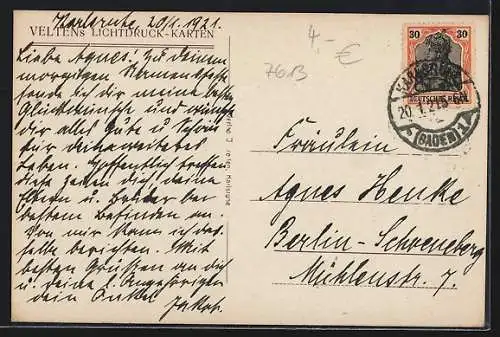 Karlsruhe, 20/1. 1921.
VELTENS LICHTDRUCK-KARTEN
Liebe Agnes! Zu deinem
morgigen Namensfeste
sende ich dir meine besten
Glückwünsche und wünsche
dir alles Gute u. Schöne
für dein weiteres
Leben. Hoffentlich treffen
diese Zeilen dich deine
Eltern u. Brüder bei
bestem Befinden an.
Von mir kann ich das-
selbe berichten. Mit
besten Grüßen an dich
u. deine l. Angehörigen
dein Onkel
Jakob.
4,- €
7613
30 30
DEUTSCHES REICH
KARLSRUHE
20.1.21
(BADEN) 1
Fräulein
Agnes Henke
Berlin-Schöneberg
Mühlenstr. 7.